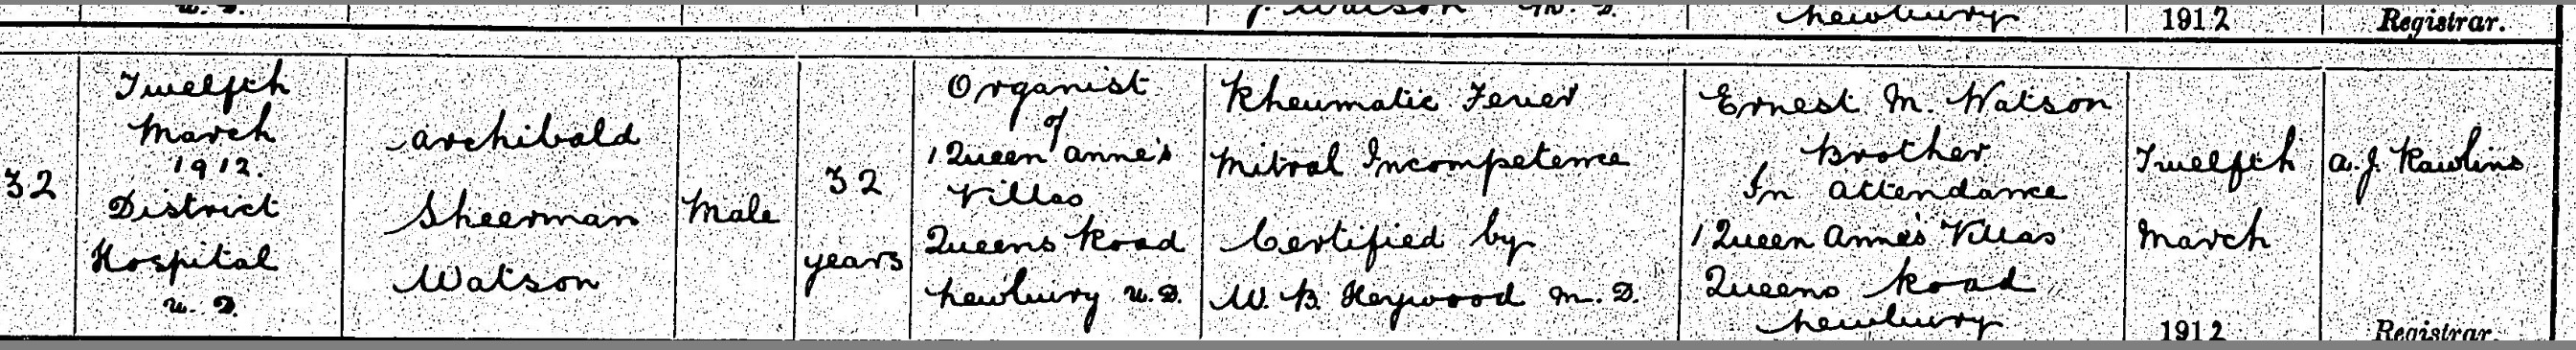 u. D.
J. Watson M. D.
Newbury
1912
Registrar.
32
Twelfth
March
1912.
District
Hospital
u. D.
Archibald
Sheerman
Watson
Male
32
years
Organist
of
1 Queen Anne's
Villas
Queens Road
Newbury u. D.
Rheumatic Fever
Mitral Incompetence
Certified by
W. B. Heywood M. D.
Ernest M. Watson
Brother
In attendance
1 Queen Anne's Villas
Queens Road
Newbury
Twelfth
March
1912
A. J. Rawlins
Registrar.